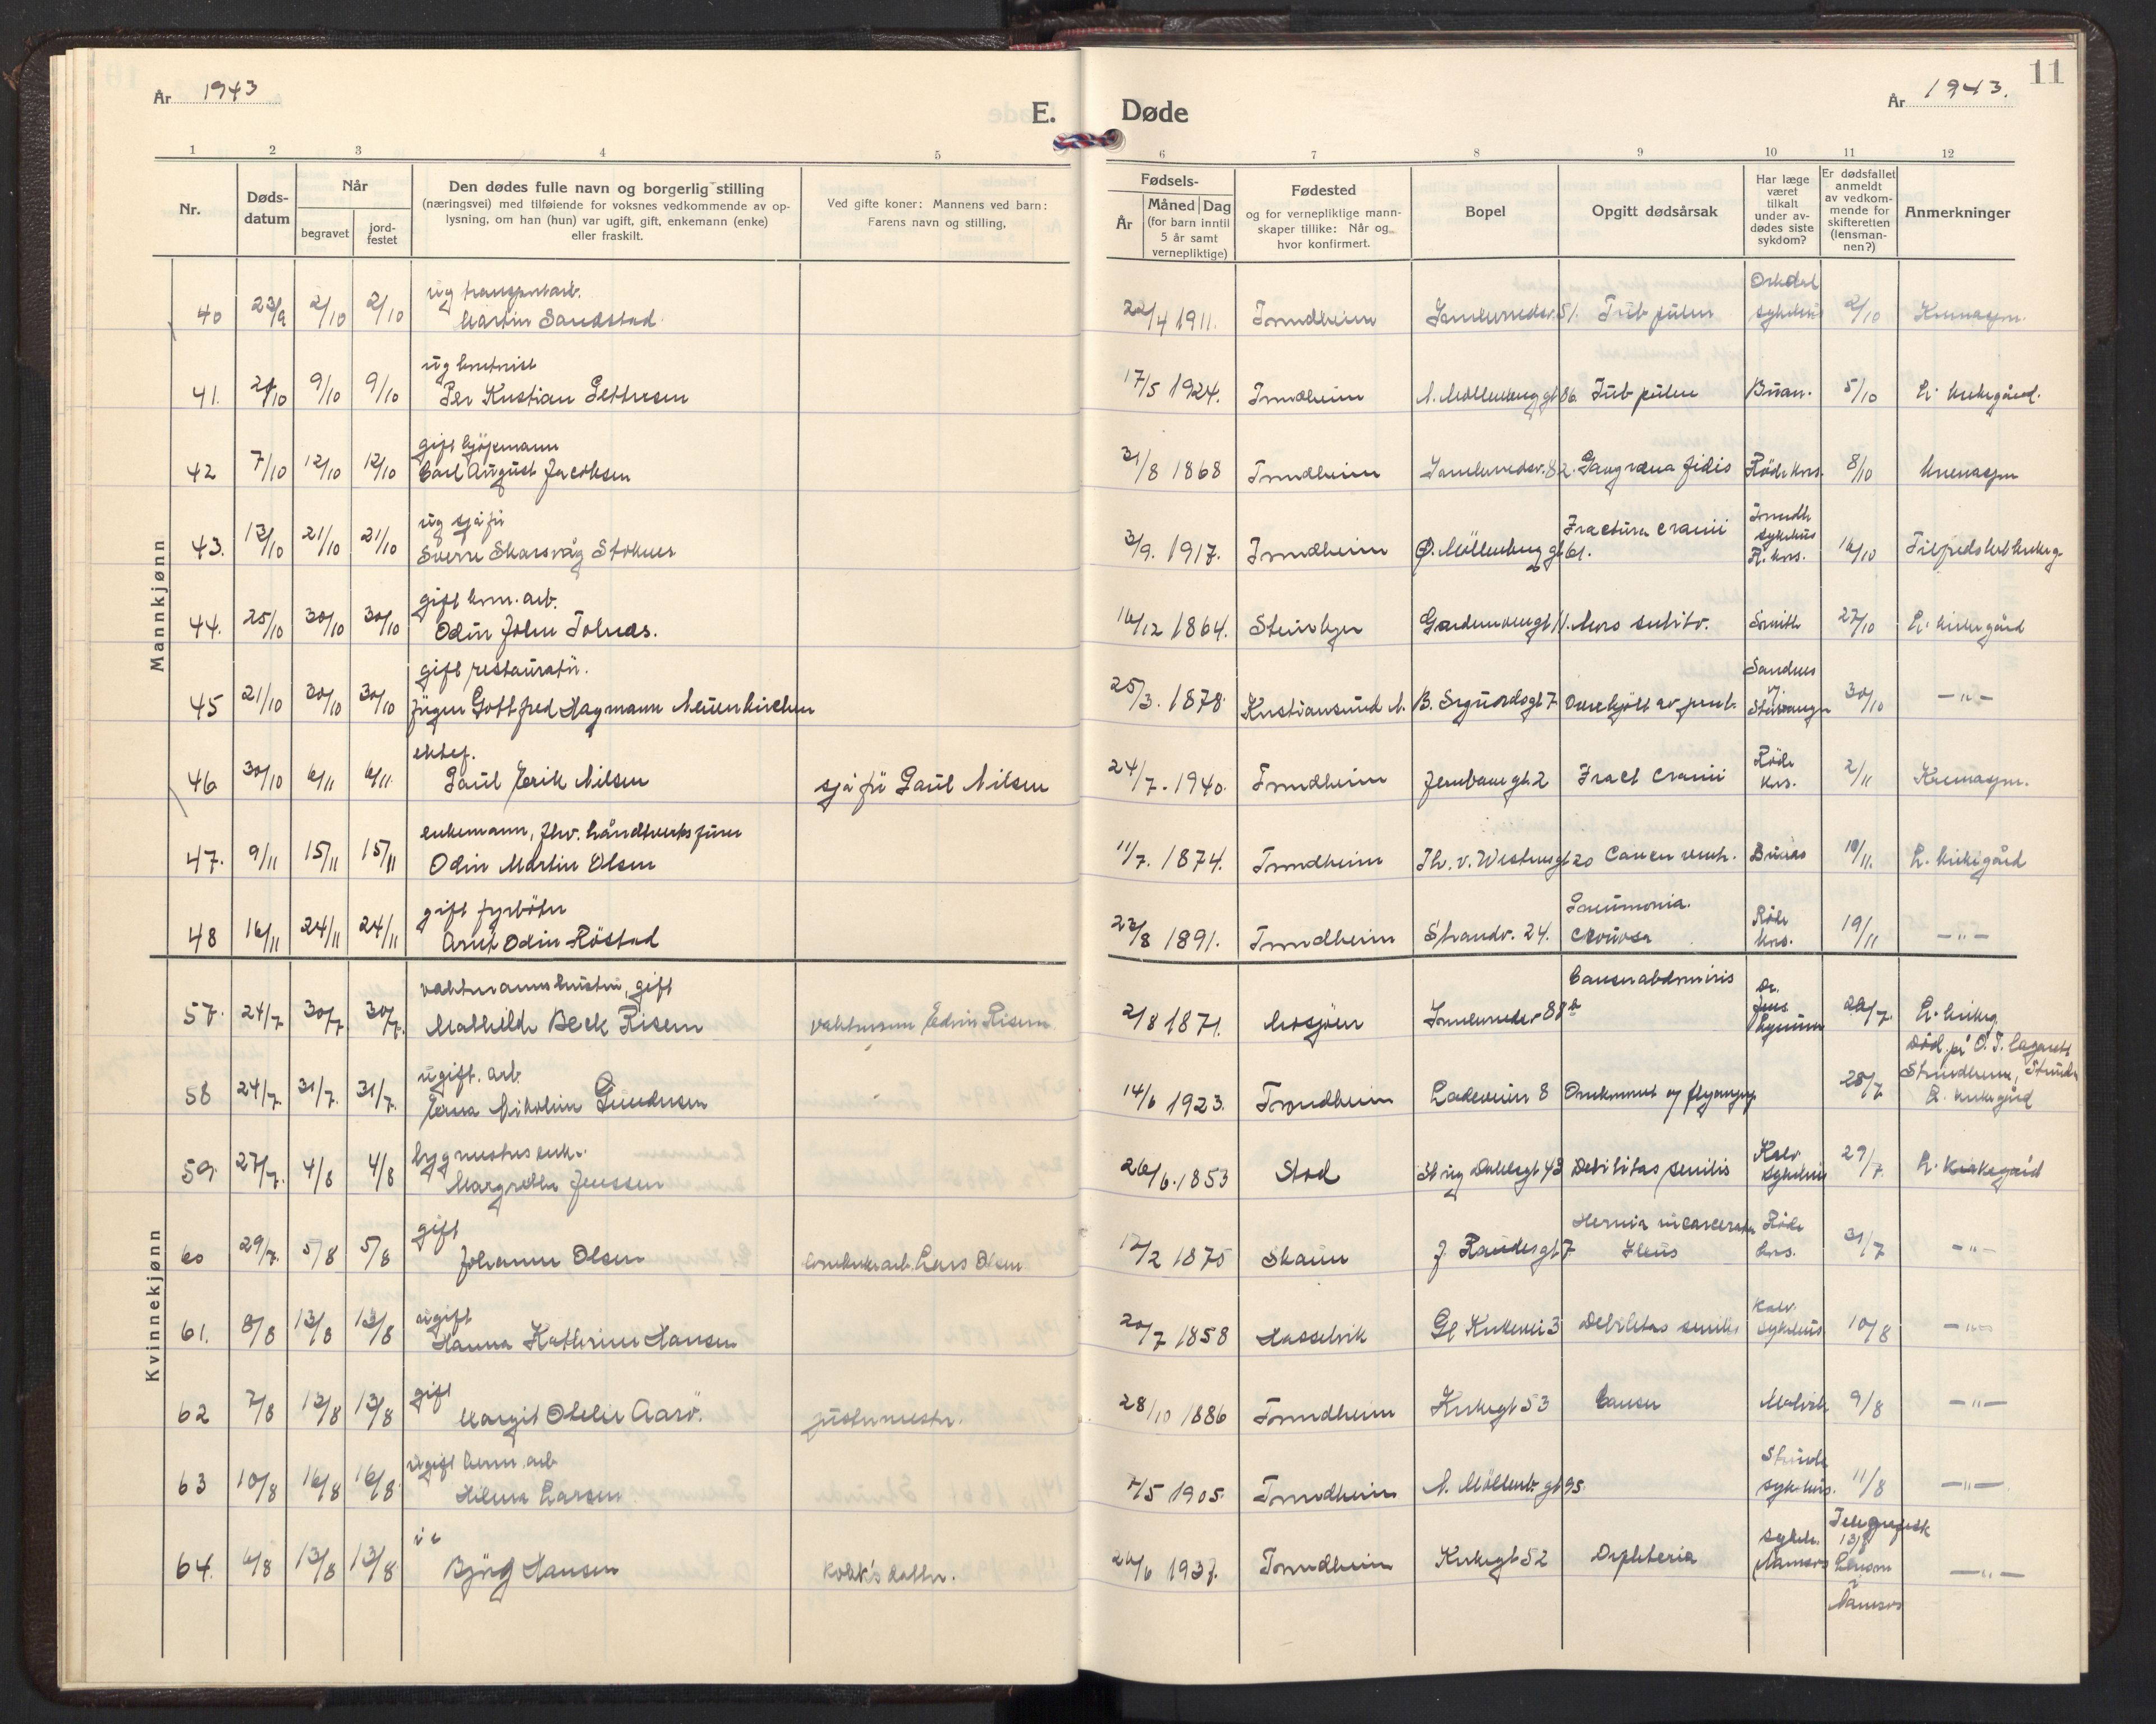 År 1943
E. Døde
År 1943.
11
1 2 3 4 5 6 7 8 9 10 11 12
Nr.
Døds-
datum
Når
begravet
jord-
festet
Den dødes fulle navn og borgerlig stilling
(næringsvei) med tilføiende for voksnes vedkommende av op-
lysning, om han (hun) var ugift, gift, enkemann (enke)
eller fraskilt.
Ved gifte koner: Mannens ved barn:
Farens navn og stilling.
Fødsels-
År
Måned Dag
(for barn inntil
5 år samt
vernepliktige)
Fødested
og for vernepliktige mann-
skaper tillike: Når og
hvor konfirmert.
Bopel
Opgitt dødsårsak
Har læge
været
tilkalt
under av-
dødes siste
sykdom?
Er dødsfallet
anmeldt
av vedkom-
mende for
skifteretten
(lensman-
nen?)
Anmerkninger
Mannkjønn
ug transportarb.
40 23/9 2/10 2/10 Martin Sandstad 22/4 1911. Trondheim 51. Tub pulm Orkdal
sykehus 2/10
ug
41. 2/10 9/10 9/10 Per Kristian Pettersen 17/5 1924. Trondheim N. Möllenberggt 86 Tub pulm Buran. 5/10 L. kirkegård.
gift kjöpmann
42 7/10 12/10 12/10 Carl August Jacobsen 31/8 1868 Trondheim 82. Gangræna Röde kors. 8/10
ug sjåfør
43. 13/10 21/10 21/10 Sverre Skarsvåg Stoknes 3/9. 1917. Trondheim Ö. Möllenberg gt 61. Fractura cranii Trondh
sykehus
R. kors. 16/10
gift kom. arb.
44. 25/10 30/10 30/10 Odin John Tolnæs. 16/12 1864. Steinkjer 11. Mors subito. 27/10 L. kirkegård
gift restauratør.
45 21/10 30/10 30/10 Jörgen Gottfred Hagmann Neuenkirchen 25/3. 1878. Kristiansund N. B. Sigurdsgt 7 Overkjört av Sandnes
v.
Stavanger 30/10 —"—
ektef.
46 30/10 6/11 6/11. Paul Erik Nilsen sjåfør Paul Nilsen 24/7. 1940. Trondheim Jernbanegt. 2 Fract cranii Röde
kors. 2/11
enkemann, fhv. håndverksfører
47. 9/11 15/11 15/11 Odin Martin Olsen 11/7. 1874. Trondheim Th. v. Westensgt 20 Cancer ventr. Buaas 10/11. L. kirkegård
gift fyrböter
48 16/11 24/11 24/11 Arnt Odin Röstad 23/8 1891. Trondheim Strandv. 24. Pneumonia.
crouosa Röde
kors. 19/11 —"—
Kvinnekjønn
vaktmannshustru, gift
57. 24/7 30/7 30/7. Mathilde Beck Risem vaktmann Edvin Risem 2/8 1871. Mosjöen Cancer abdominis Dr.
Jens 28/7. L. kirkeg.
ugift. arb.
58 24/7. 31/7. 31/7. Erna Nikoline Gundersen 14/6 1923. Trondheim Ladeveien 8 Omkommet og flyangrep 28/7. Död på O. T. Lazarett
Strindheim, Strinda
L. kirkegård
bygmesters enke.
59. 27/7. 4/8 4/8 Margrethe Jenssen 26/6. 1853 Stod Stig Dahlsgt 43 Debilitas senilis Kalv.
sykehus 29/7. L. kirkegård
gift
60 29/7. 5/8 5/8 Johanne Olsen Lars Olsen 12/2 1875 Skaun J. Raudesgt 7. Hernia incarcerata
Ileus Röde
kors. 31/7 —"—
ugift
61. 8/8 13/8 13/8 Hanna Kathrine Hansen 20/7 1858 Hasselvik Gl Kirkevei 3 Debilitas senilis Kalv.
sykehus 10/8 —"—
gift
62 7/8 13/8 13/8 Margit Otelie Aarö. 28/10 1886 Trondheim Kirkegt 53 Cancer Malvik 9/8 —"—
ugift arb
63 10/8 16/8 16/8 Hilma Larsen 7/5 1905. Trondheim N. Möllenb. gt 95. Strinda
sykehus. 11/8 —"—
64. 6/8 13/8 13/8 Björg Hansen kokk's datter. 26/6 1937. Trondheim Kirkegt 52 Difteria sykeh.
Namsos Telegrafisk
13/8
Lensm
i
Namsos —"—